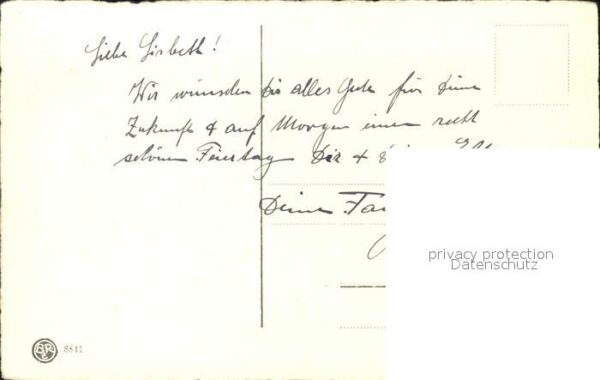 Liebe Lisbeth!
Wir wünschen Dir alles Gute für Deine
Zukunft & auf Morgen einen recht
schönen Feiertag Dir &
Deine
privacy protection
Datenschutz
8841